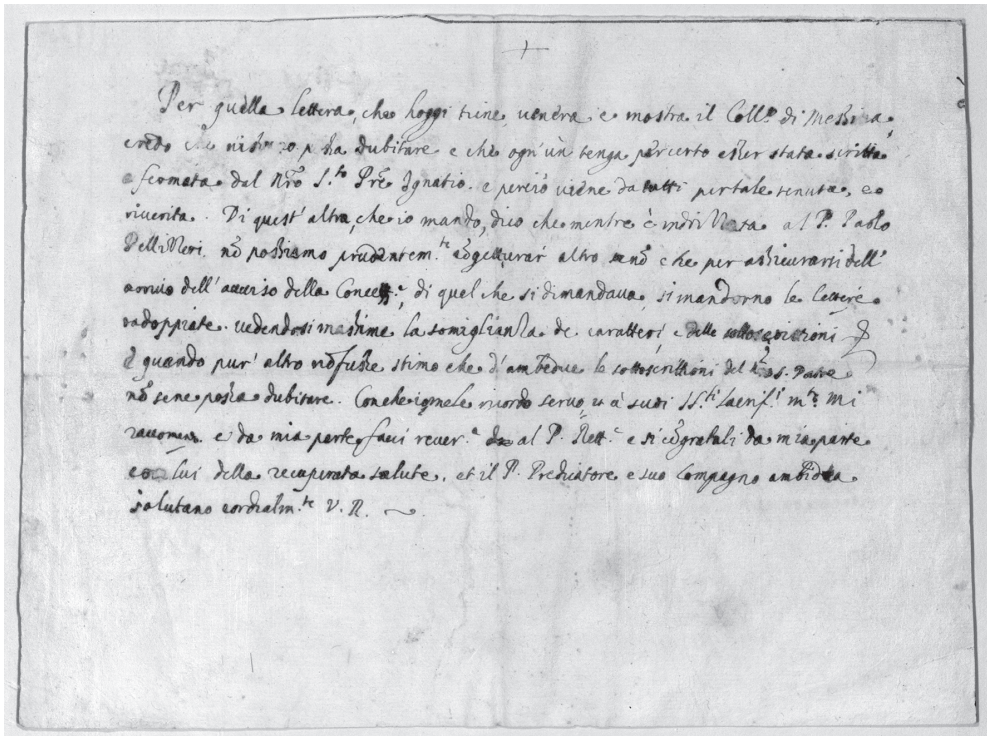 +
Per quella lettera, che hoggi tiene, venera e mostra il Coll.º di Messina,
credo che niuno possa dubitare e che ogn'un tenga per certo esser stata scritta
e firmata dal Nr̃o S.to Pr̃e Ignatio. e perciò viene da tutti per tale tenuta, e
riverita. Di quest'altra, che io mando, dico che mentre è indrizzata al P. Paolo
nõ possiamo prudentem.te altro che per assicurarsi dell'
arrivo dell'avviso della di quel che si dimandava, si mandorno le lettere
radoppiate. vedendosi massime la somiglianza de caratteri, e delle sottoscrizioni
E quando pur' altro nõ fusse stimo che d'ambedue le sottoscrittioni del S. Padre
nõ sene possa dubitare. Con che ricordo servo, e a suoi SS.ti m.to mi
e da mia parte facci rever.ª al P. Rett.e e si cõgratuli da mia parte
lui della recuperata salute, et il P. Predicatore e suo Compagno
salutano cordialm.te V. R.